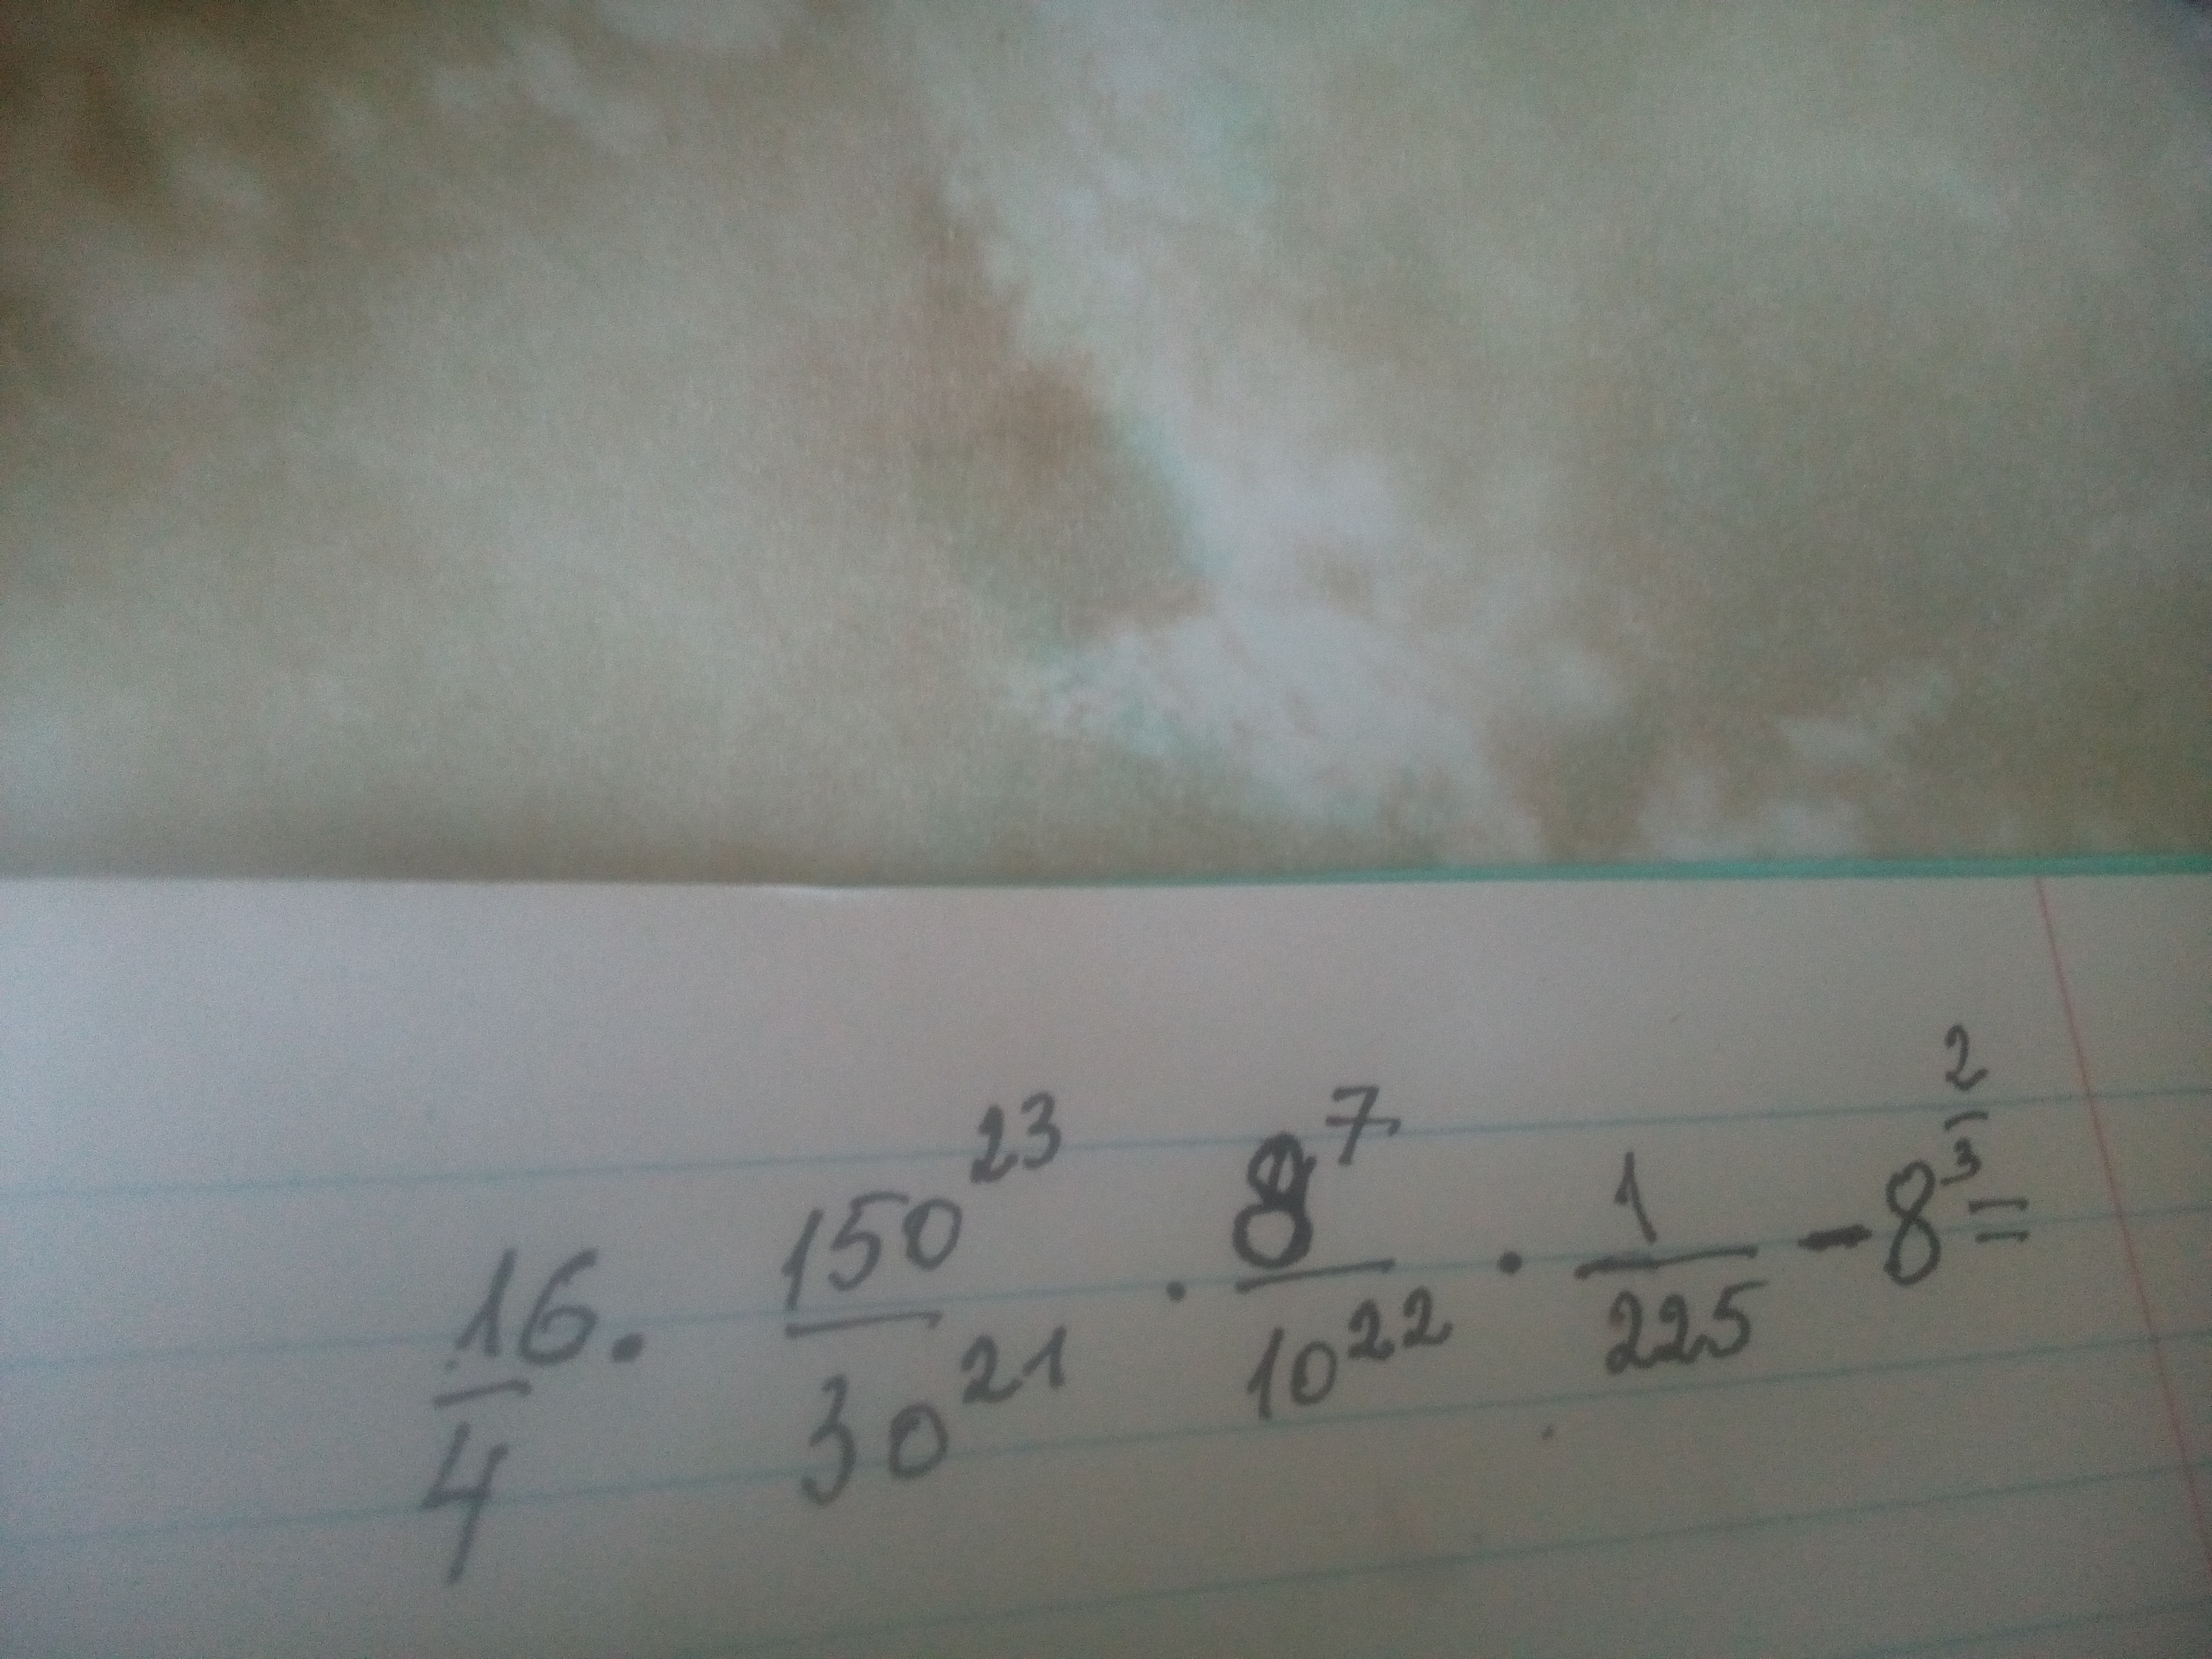 16/4 · 150^23/30^21 · 8^7/10^22 · 1/225 - 8^(2/3) =